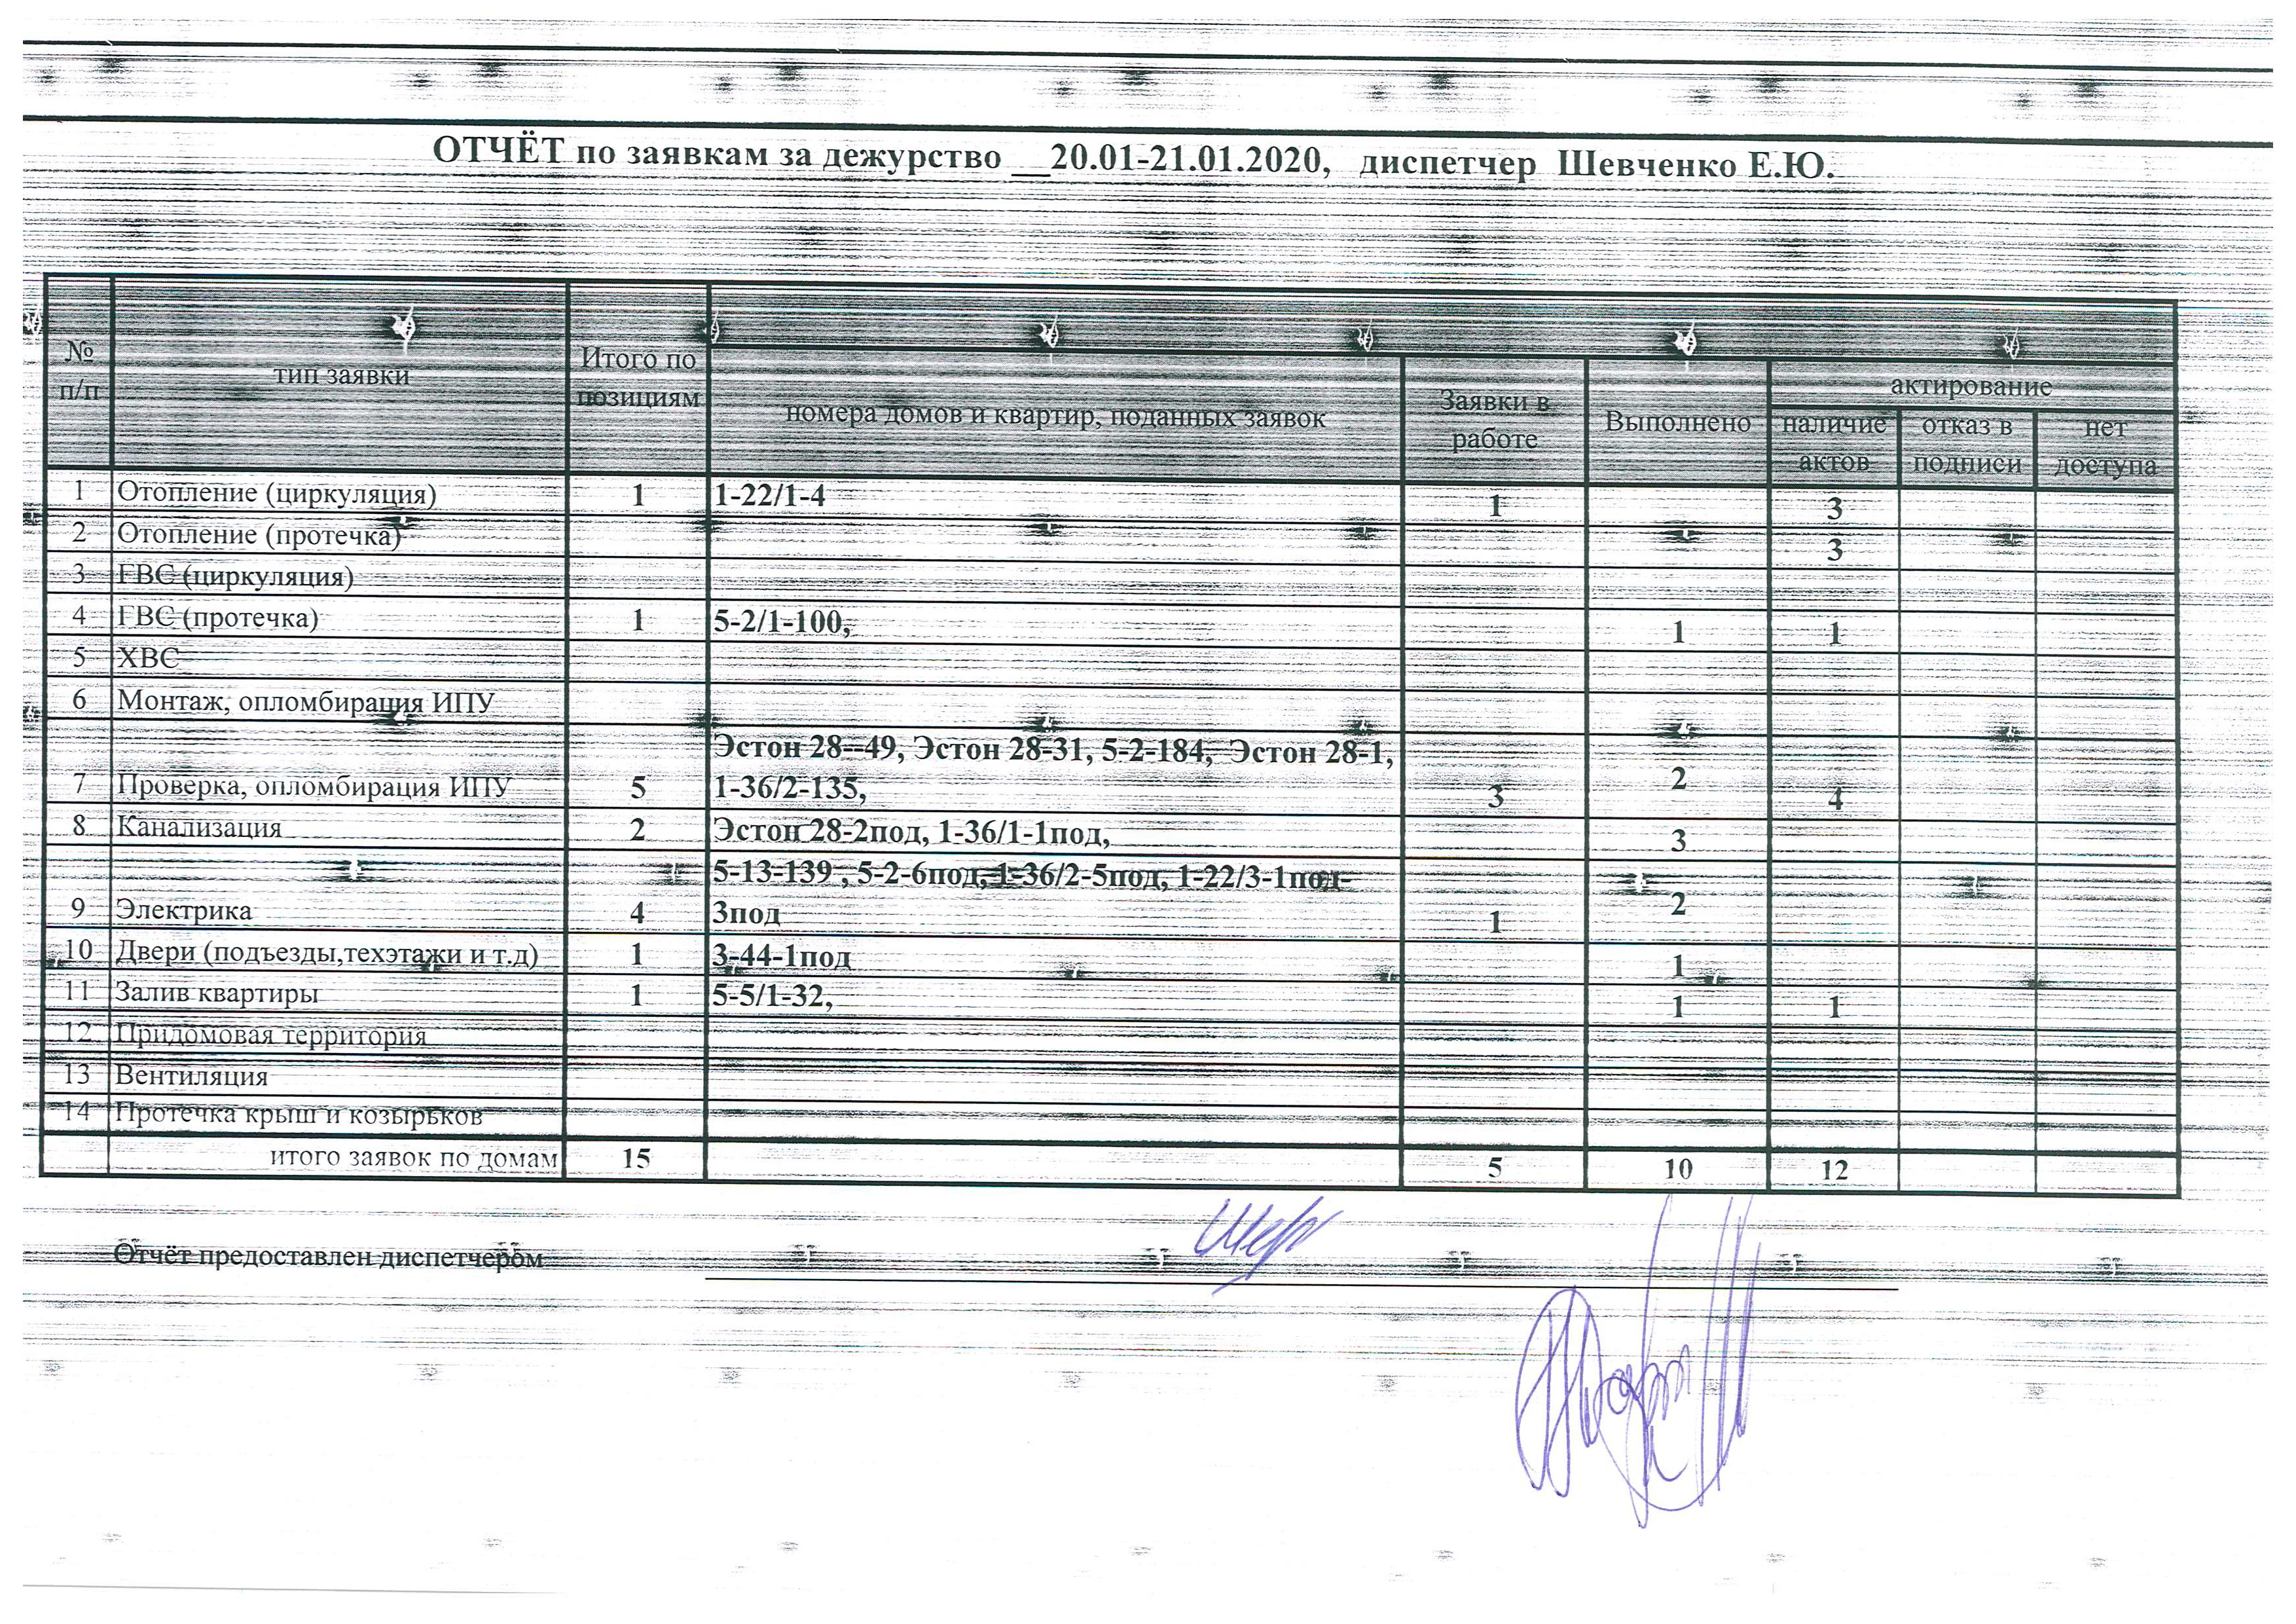 ОТЧЁТ по заявкам за дежурство __20.01-21.01.2020, диспетчер Шевченко Е.Ю.
№ п/п тип заявки Итого по позициям номера домов и квартир, поданных заявок Заявки в работе Выполнено актирование
наличие актов отказ в подписи нет доступа
1 Отопление (циркуляция) 1 1-22/1-4 1 3
2 Отопление (протечка) 3
3 ГВС (циркуляция)
4 ГВС (протечка) 1 5-2/1-100, 1 1
5 ХВС
6 Монтаж, опломбирация ИПУ
Эстон 28--49, Эстон 28-31, 5-2-184, Эстон 28-1,
7 Проверка, опломбирация ИПУ 5 1-36/2-135, 3 2 4
8 Канализация 2 Эстон 28-2под, 1-36/1-1под, 3
5-13-139 , 5-2-6под, 1-36/2-5под, 1-22/3-1под-
9 Электрика 4 3под 1 2
10 Двери (подъезды,техэтажи и т.д) 1 3-44-1под 1
11 Залив квартиры 1 5-5/1-32, 1 1
12 Придомовая территория
13 Вентиляция
14 Протечка крыш и козырьков
итого заявок по домам 15 5 10 12
Отчёт предоставлен диспетчером